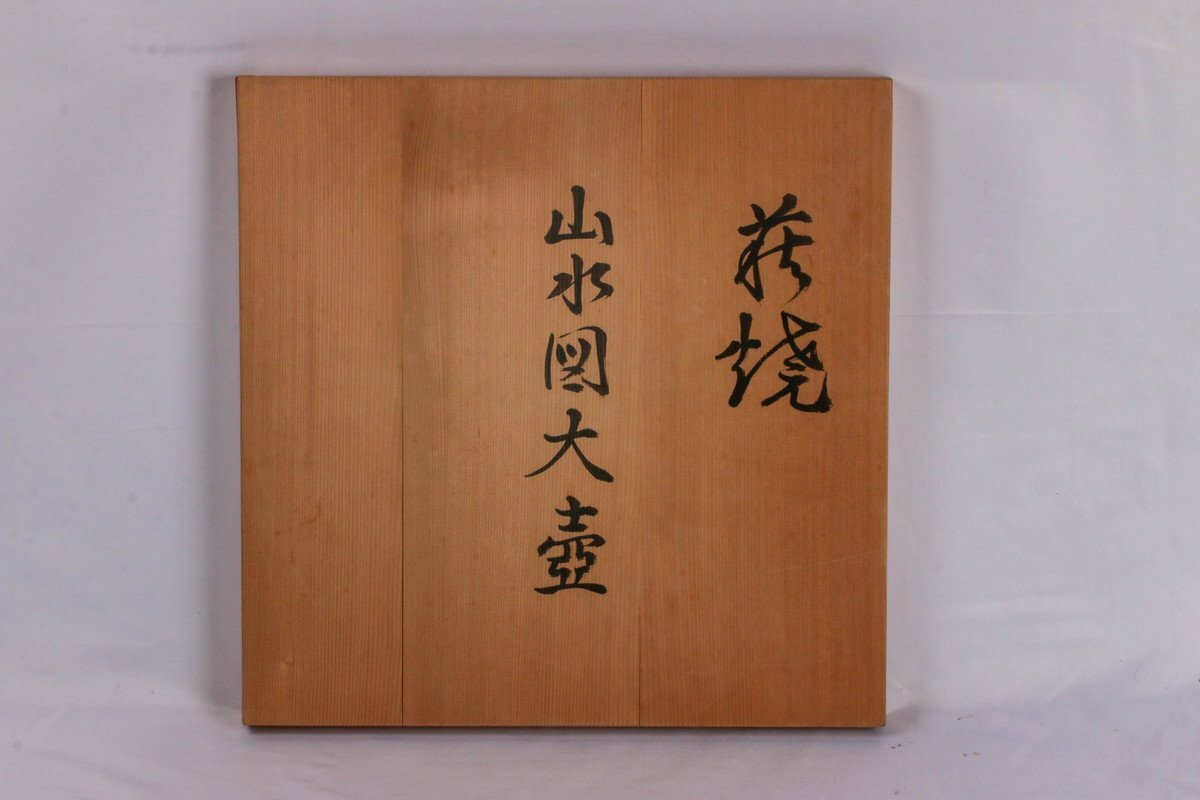 萩焼
山水図大壺